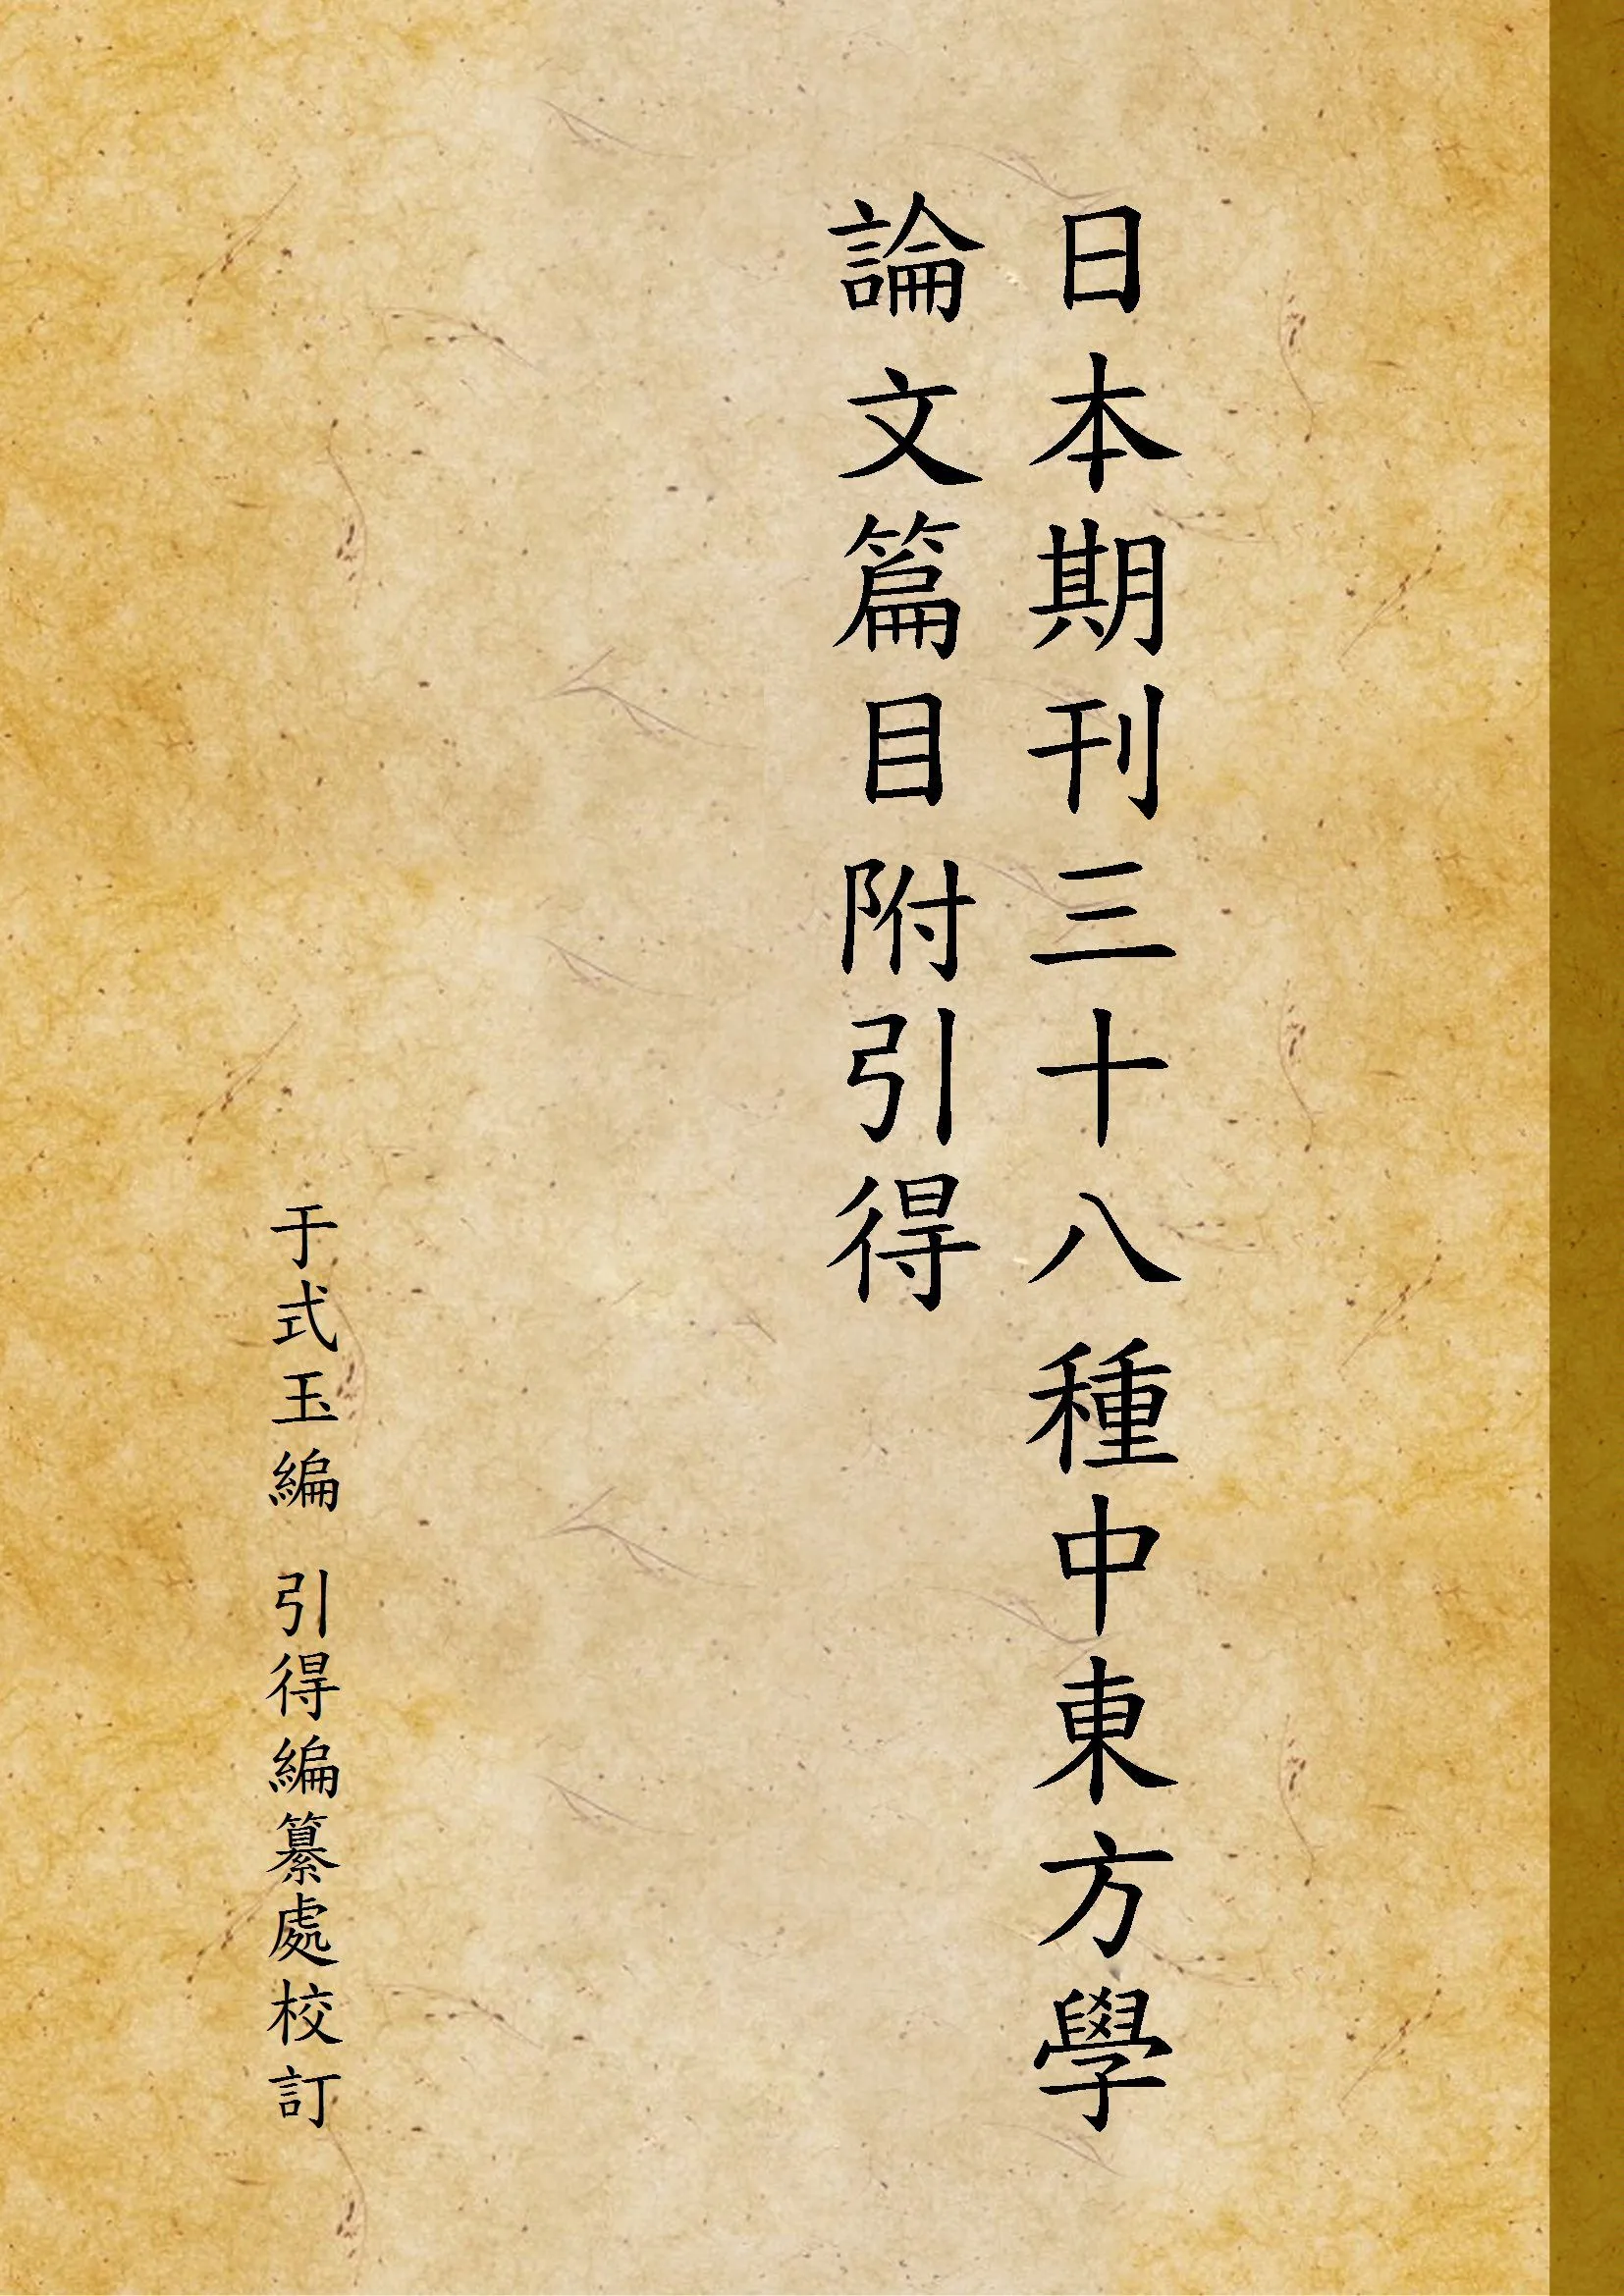 日本期刊三十八種中東方學
論文篇目附引得
于式玉編 引得編纂處校訂